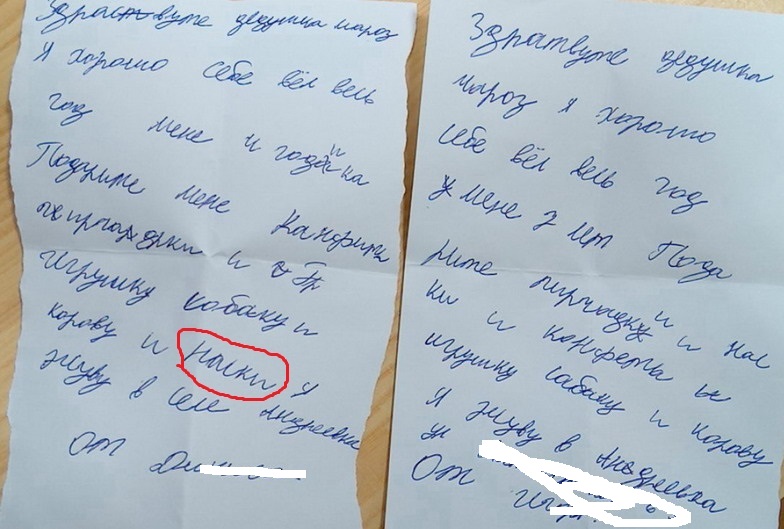 Здраствуте дедушка мароз
Я хорошо себе вёл весь
год мене и годика
Подрите мене Канфити
пирчадки и
игрушку собаку и
корову и наски я
живу в селе Андреевка
от
Здратвуте дедушка
мароз я хорошо
себе вёл весь год
у мене 7 лет Пода
рите пирчадки и нас
ки и конфеты и
игрушку сабаку и корову
Я живу в Андреевка
От